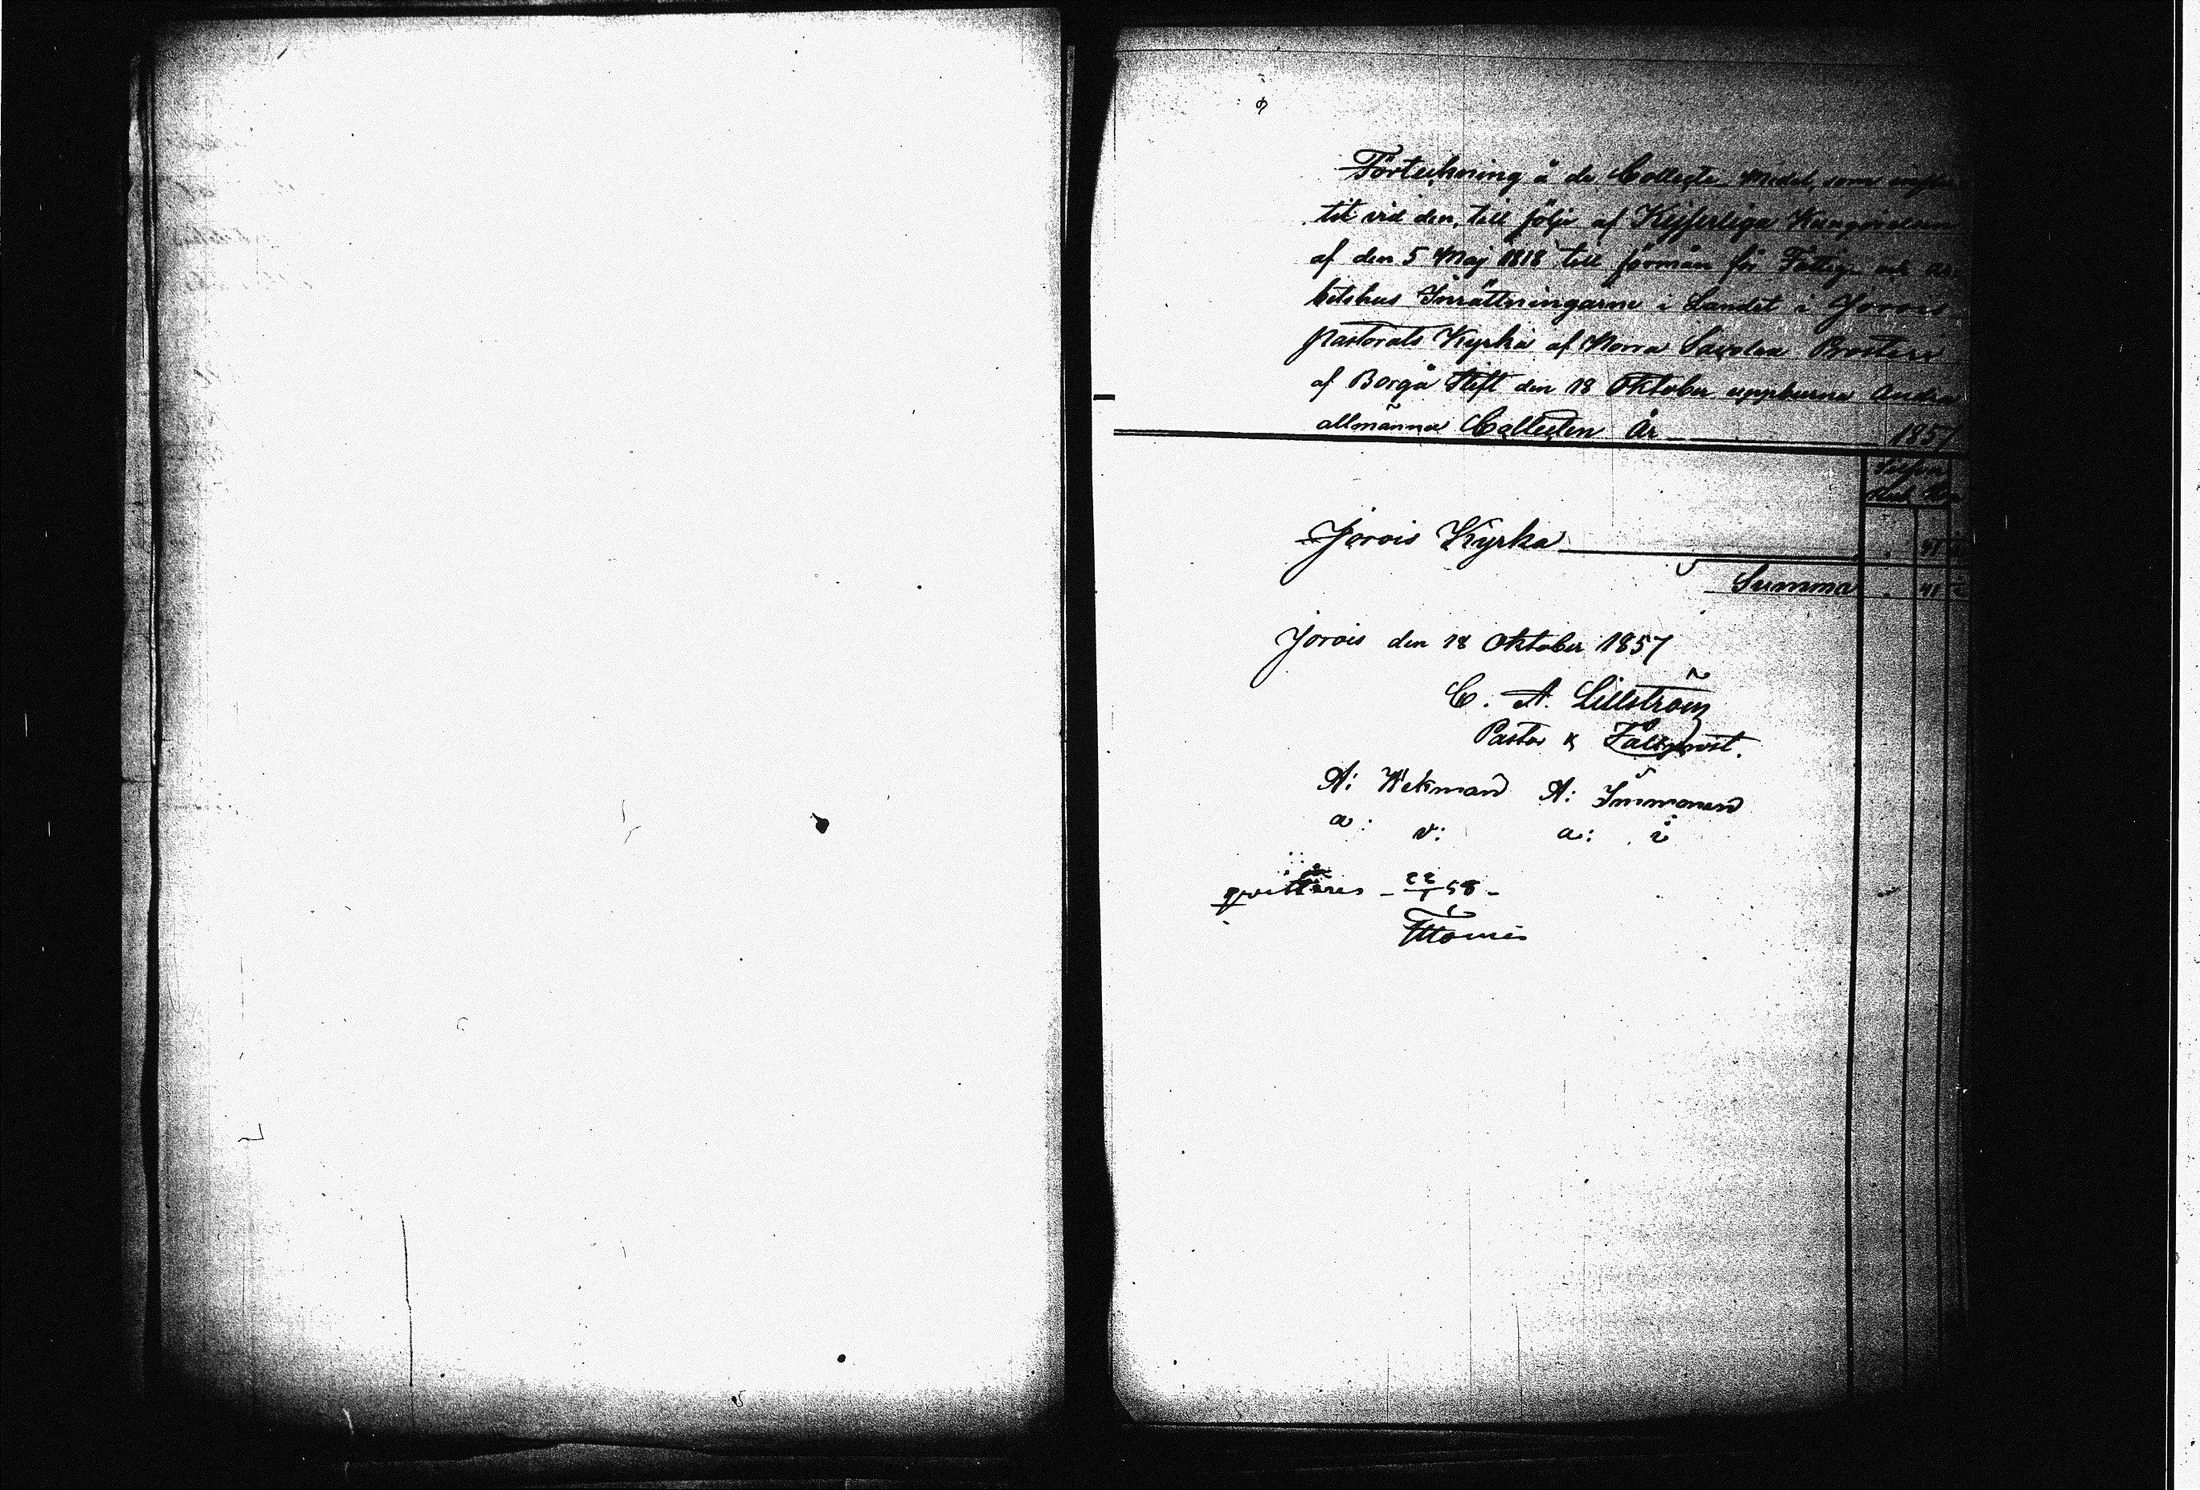 Förteckning å de Collecte-Medel, som influ-
tit vid den, till följe af Kejserliga Kungörelsen
af den 5 Maj 1818 till förmån för Fattig och Ar-
betshus Inrättningarne i Landet i Jorois
pastorats Kyrka af Norra Savolax Prosteri
af Borgå Stift den 18 Oktober uppburna Andra
allmänna Collecten År 1857
Silfver
Rub. Kop
Jorois Kyrka 41
Summa 41
Jorois den 18 Oktober 1857
C. A. Lillström
Pastor & Fältprost.
A: Wekman A: Immonen
a: v: a: i
qvitteres - 22/1 58 -